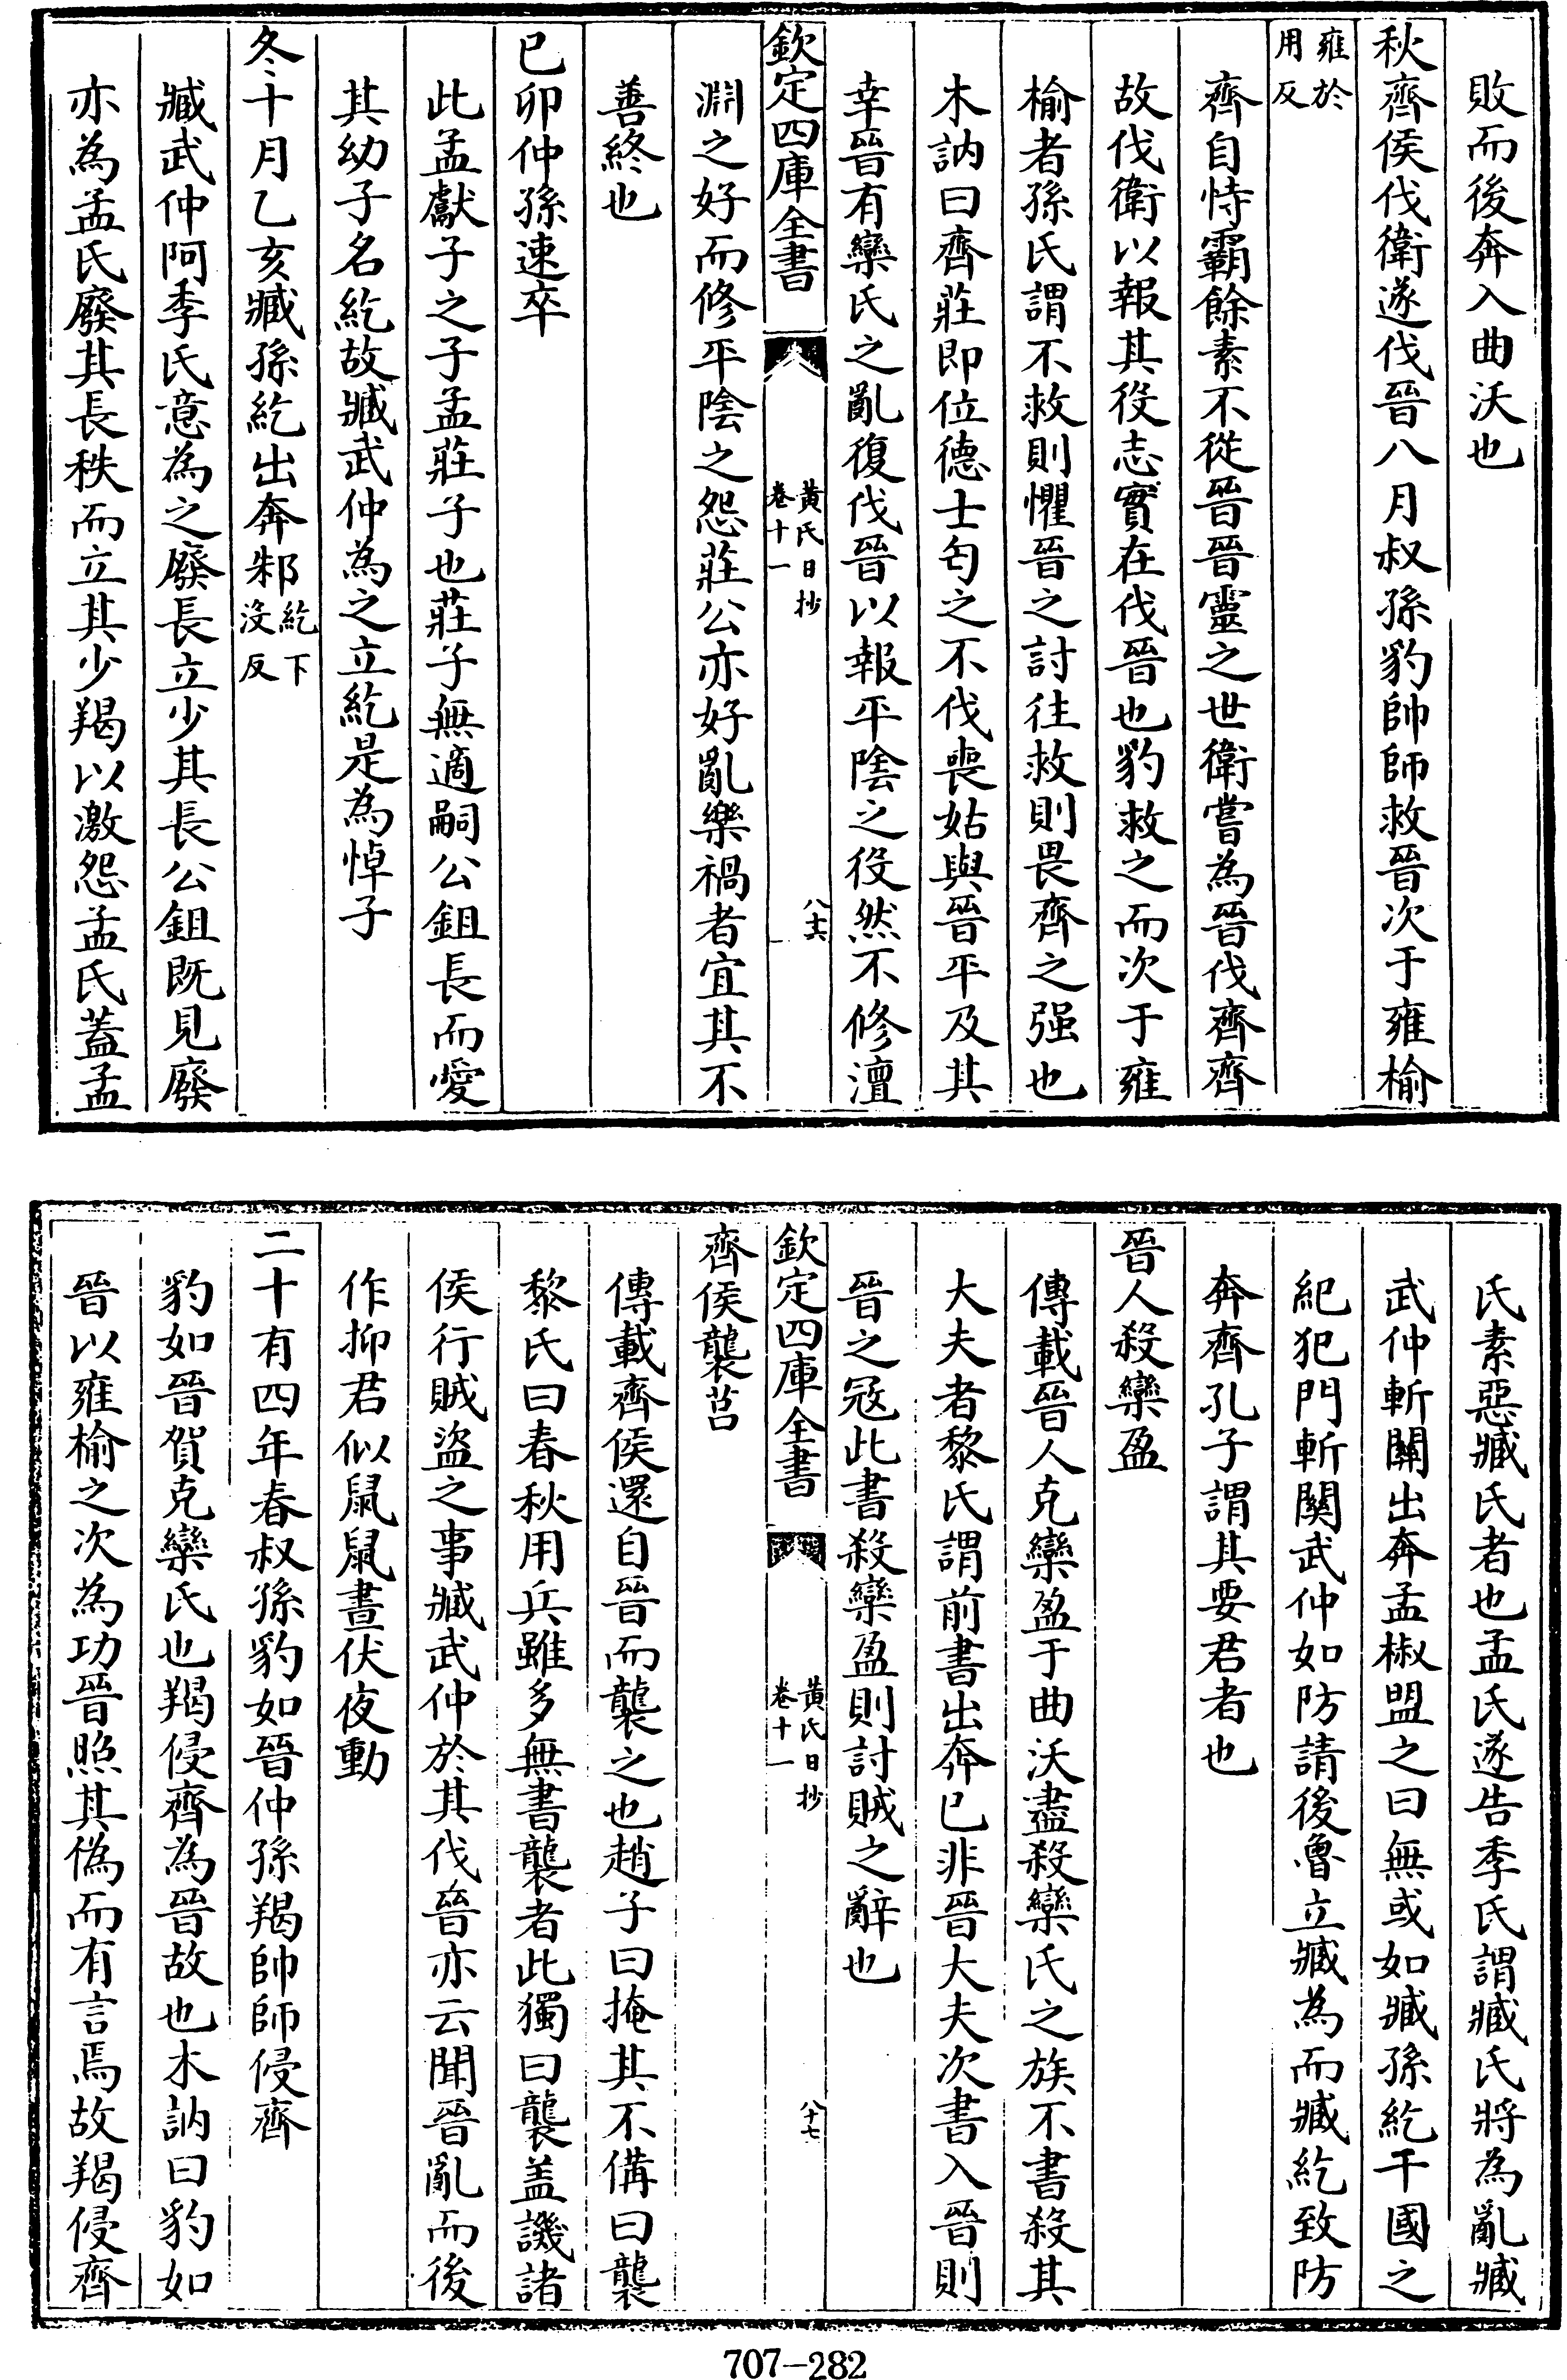 敗而後奔入曲沃也
秋齊侯伐衛遂伐晉八月叔孫豹帥師救晉次于雍榆
雍於
用反
齊自恃霸餘素不從晉晉靈之世衛嘗為晉伐齊齊
故伐衛以報其役志實在伐晉也豹救之而次于雍
榆者孫氏謂不救則懼晉之討往救則畏齊之强也
木訥曰齊莊即位德士匄之不伐喪姑與晉平及其
幸晉有欒氏之亂復伐晉以報平隂之役然不修澶
欽定四庫全書
黃氏日抄
卷十一
八十六
淵之好而修平隂之怨莊公亦好亂樂禍者宜其不
善終也
已卯仲孫速卒
此孟獻子之子孟莊子也莊子無適嗣公鉏長而愛
其幼子名紇故臧武仲為之立紇是為悼子
冬十月乙亥臧孫紇出奔邾紇下
没反
臧武仲阿季氏意為之廢長立少其長公鉏既見廢
亦為孟氏廢其長秩而立其少羯以激怨孟氏蓋孟
氏素惡臧氏者也孟氏遂告季氏謂臧氏將為亂臧
武仲斬關出奔孟椒盟之曰無或如臧孫紇干國之
紀犯門斬關武仲如防請後魯立臧為而臧紇致防
奔齊孔子謂其要君者也
晉人殺欒盈
傳載晉人克欒盈于曲沃盡殺欒氏之族不書殺其
大夫者黎氏謂前書出奔已非晉大夫次書入晉則
晉之冦此書殺欒盈則討賊之辭也
欽定四庫全書
黃氏日抄
卷十一
八十七
齊侯襲莒
傳載齊侯還自晉而襲之也趙子曰掩其不備曰襲
黎氏曰春秋用兵雖多無書襲者此獨曰襲盖譏諸
侯行賊盜之事臧武仲於其伐晉亦云聞晉亂而後
作抑君似鼠鼠晝伏夜動
二十有四年春叔孫豹如晉仲孫羯帥師侵齊
豹如晉賀克欒氏也羯侵齊為晉故也木訥曰豹如
晉以雍榆之次為功晉照其偽而有言焉故羯侵齊
707-282